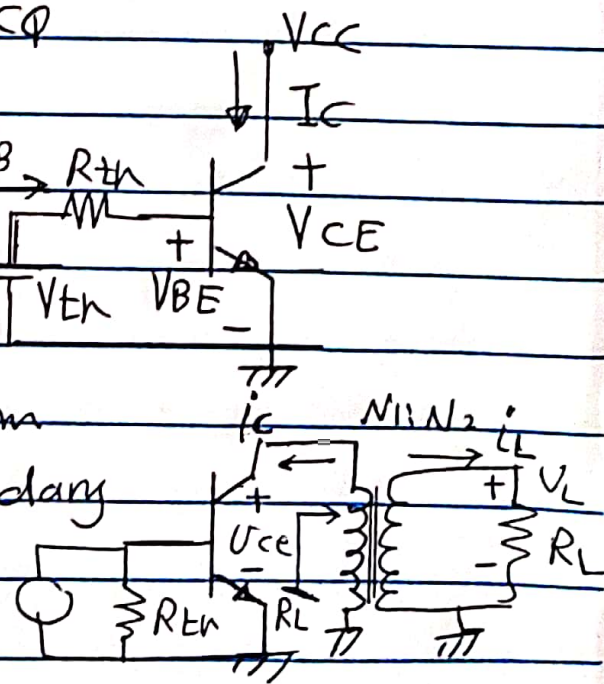 CQ
VCC
IC
B
Rth
+
VCE
+
Vth
VBE
-
ic
N1:N2
iL
+
VL
+
Vce
RL
-
-
Rth
RL